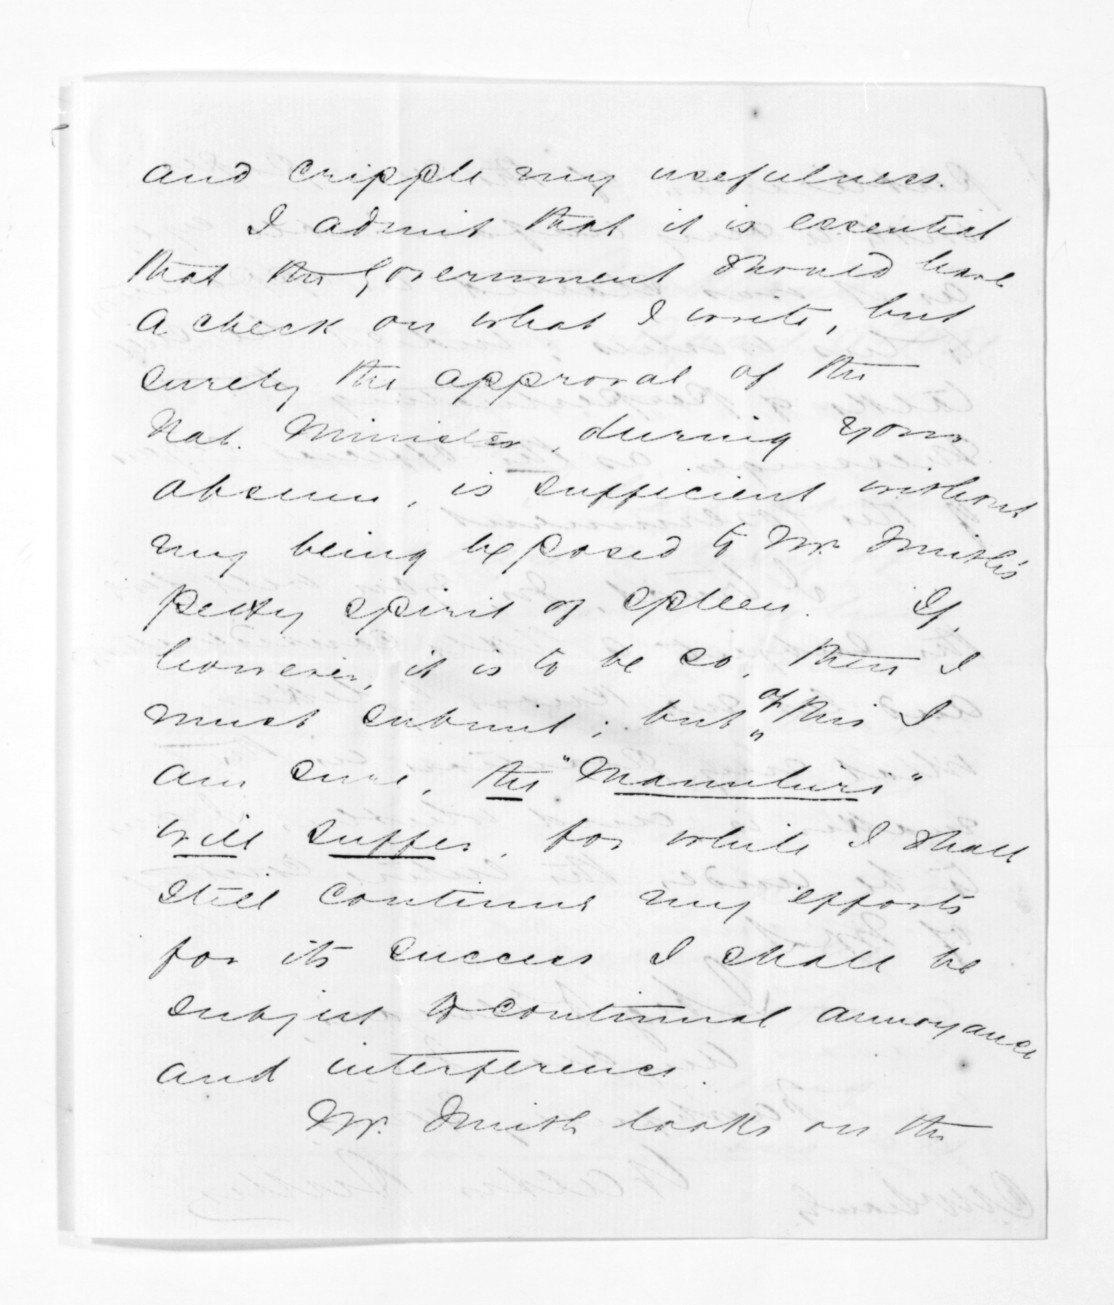 and cripple my usefulness.
I admit that it is essential
that the Government should have
a check on what I write, but
surely the approval of the
Nat. Minister, during your
absence, is sufficient without
my being exposed to Mr. Smith's
petty spirit of spleen. If,
however, it is to be so, then I
must submit; but of this I
am sure, the "Manuhuri"
will suffer, for while I shall
still continue my efforts
for its success I shall be
subject to continual annoyance
and interference.
Mr. Smith looks on the